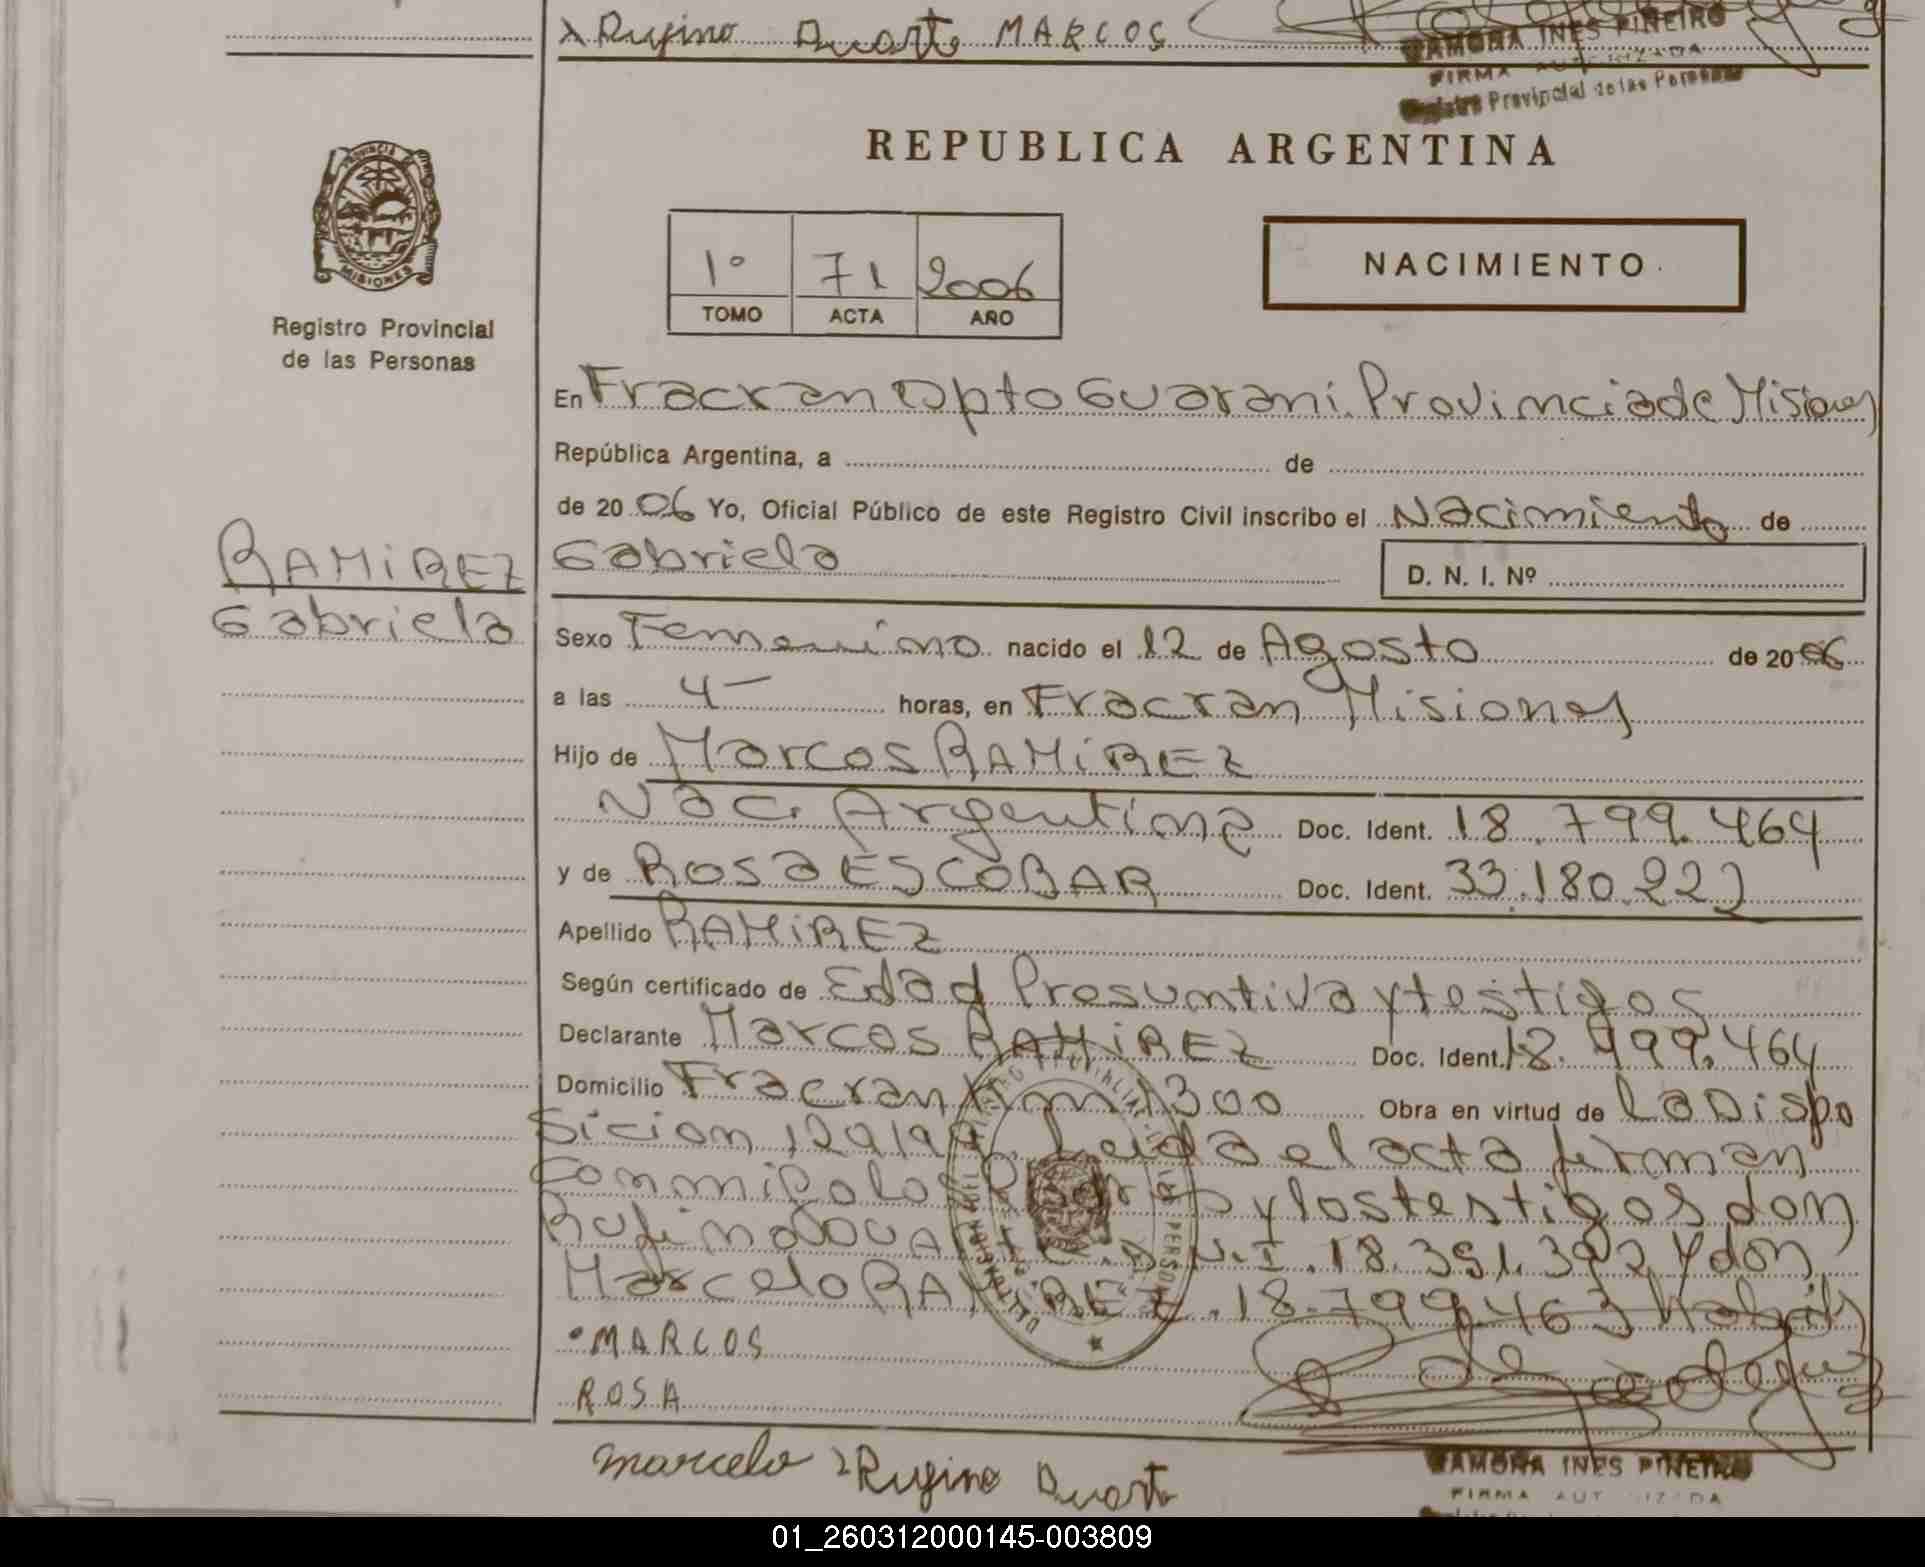 x Rufino Duarte MARCOS
RAMONA INES PIÑEIRO
FIRMA AUTORIZADA
Registro Provincial de las Personas
PROVINCIA DE
MISIONES
Registro Provincial
de las Personas
REPUBLICA ARGENTINA
1° 71 2006
TOMO ACTA AÑO
NACIMIENTO
En Fracran Dpto Guarani Provincia de Misiones
República Argentina, a de
de 2006 Yo, Oficial Público de este Registro Civil inscribo el Nacimiento de
RAMIREZ
Gabriela
Gabriela D. N. I. Nº
Sexo Femenino nacido el 12 de Agosto de 2006
a las 4- horas, en Fracran Misiones
Hijo de Marcos RAMIREZ
Nac. Argentina Doc. Ident. 18.799.464
y de Rosa ESCOBAR Doc. Ident. 33.180.222
Apellido RAMIREZ
Según certificado de Edad Presuntiva y testigos
Declarante Marcos RAMIREZ Doc. Ident. 18.799.464
Domicilio Fracran Km 1300 Obra en virtud de La Dispo
sicion 129/99 Leida el acta firman
conmigo los Padres y los testigos don
Rufino DUARTE D.N.I. 18.351.392 y don
Marcelo RAMIREZ 18.799.463 habiles
MARCOS
ROSA
marcelo Rufino Duarte
RAMONA INES PIÑEIRO
FIRMA AUTORIZADA
01_260312000145-003809